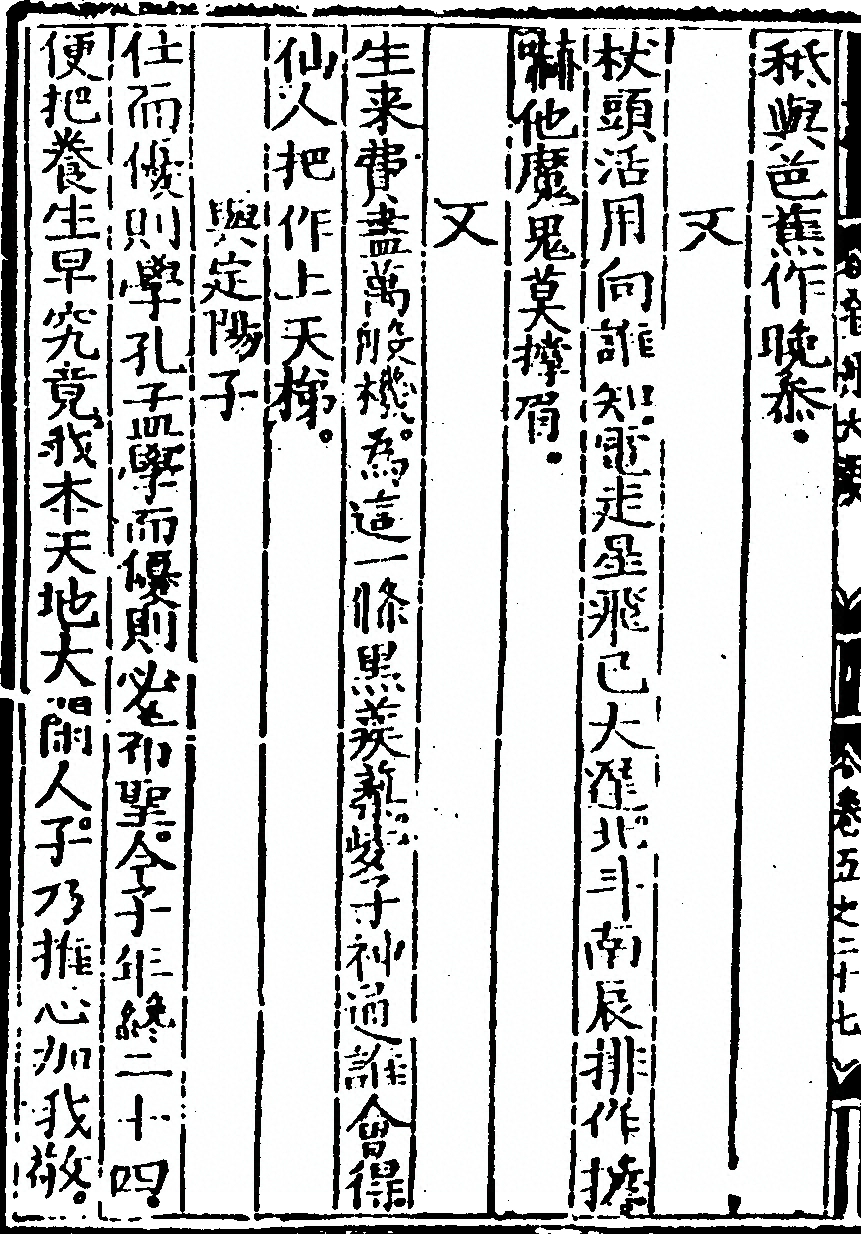 秪與芭蕉作晚參。
又
杖頭活用向誰知。電走星飛已大遲。北斗南辰排作擔。
嚇他魔鬼莫攢眉。
又
生來費盡萬般機。為這一條黑蒺藜。拏子神通誰會得。
仙人把作上天梯。
與定陽子
仕而優則學孔孟學而優則必希聖。今子年終二十四。
便把養生早究竟。我本天地大閒人。子乃推心加我敬。
卷五之二十七